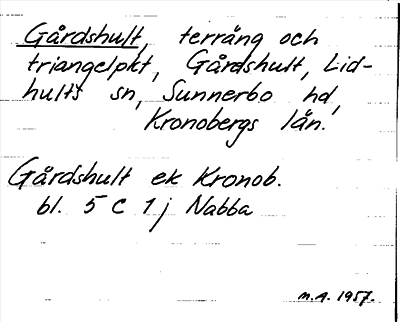 Gårdshult, terräng och
triangelpkt, Gårdshult, Lid-
hults sn, Sunnerbo hd,
Kronobergs län.
Gårdshult ek Kronob.
bl. 5 C 1 j Nabba
M.A. 1957.